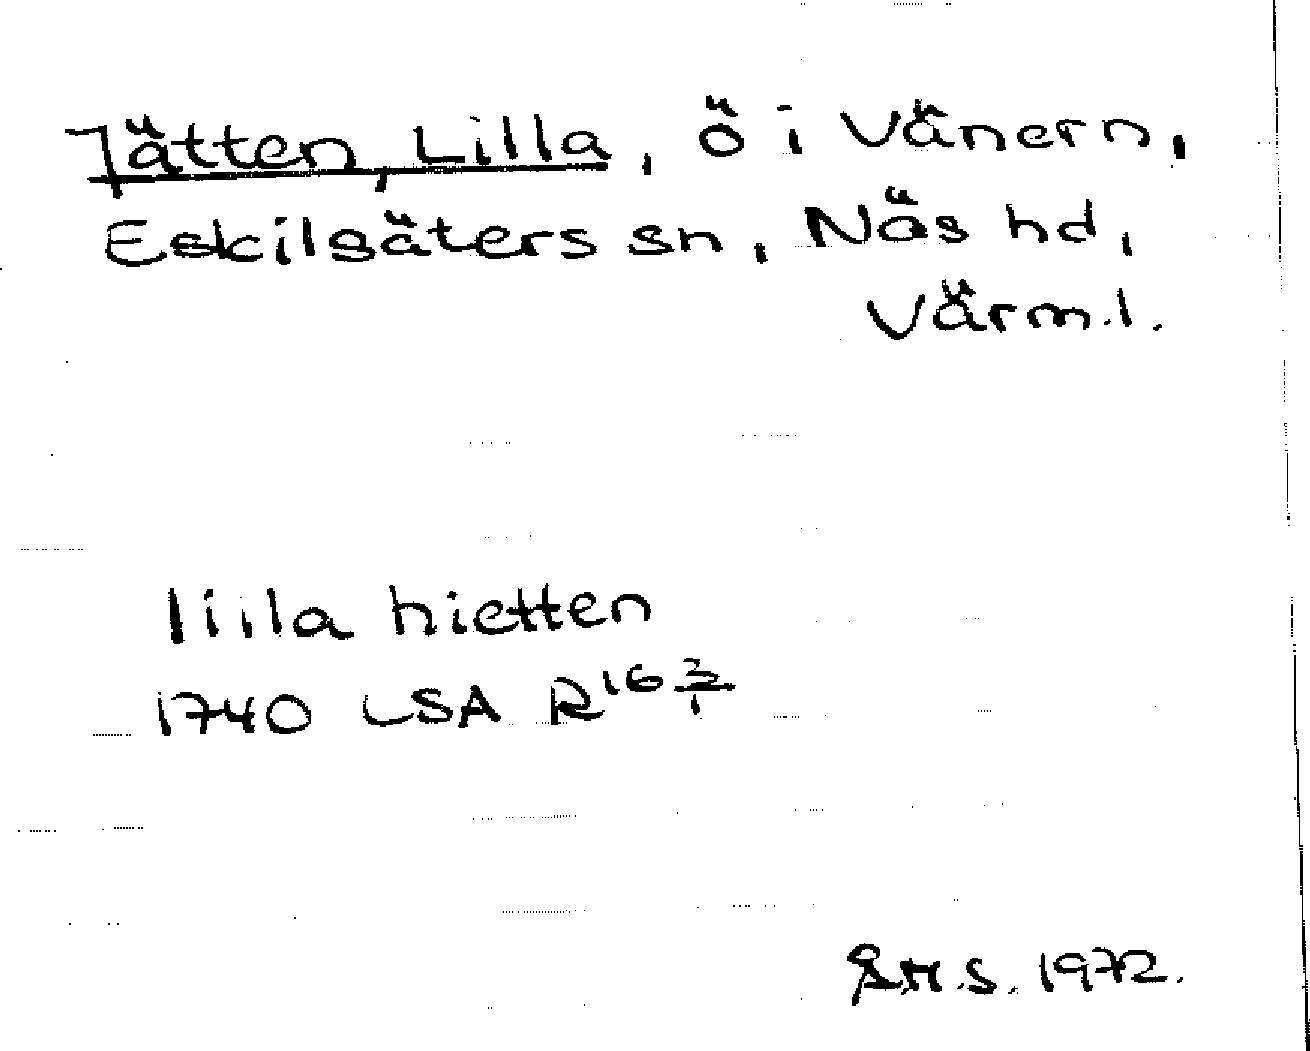 Jätten, Lilla, ö i Vänern,
Eskilsäters sn, Näs hd,
Värml.
liila hietten
1740 LSA R16 2/1
S.M.S. 1972.